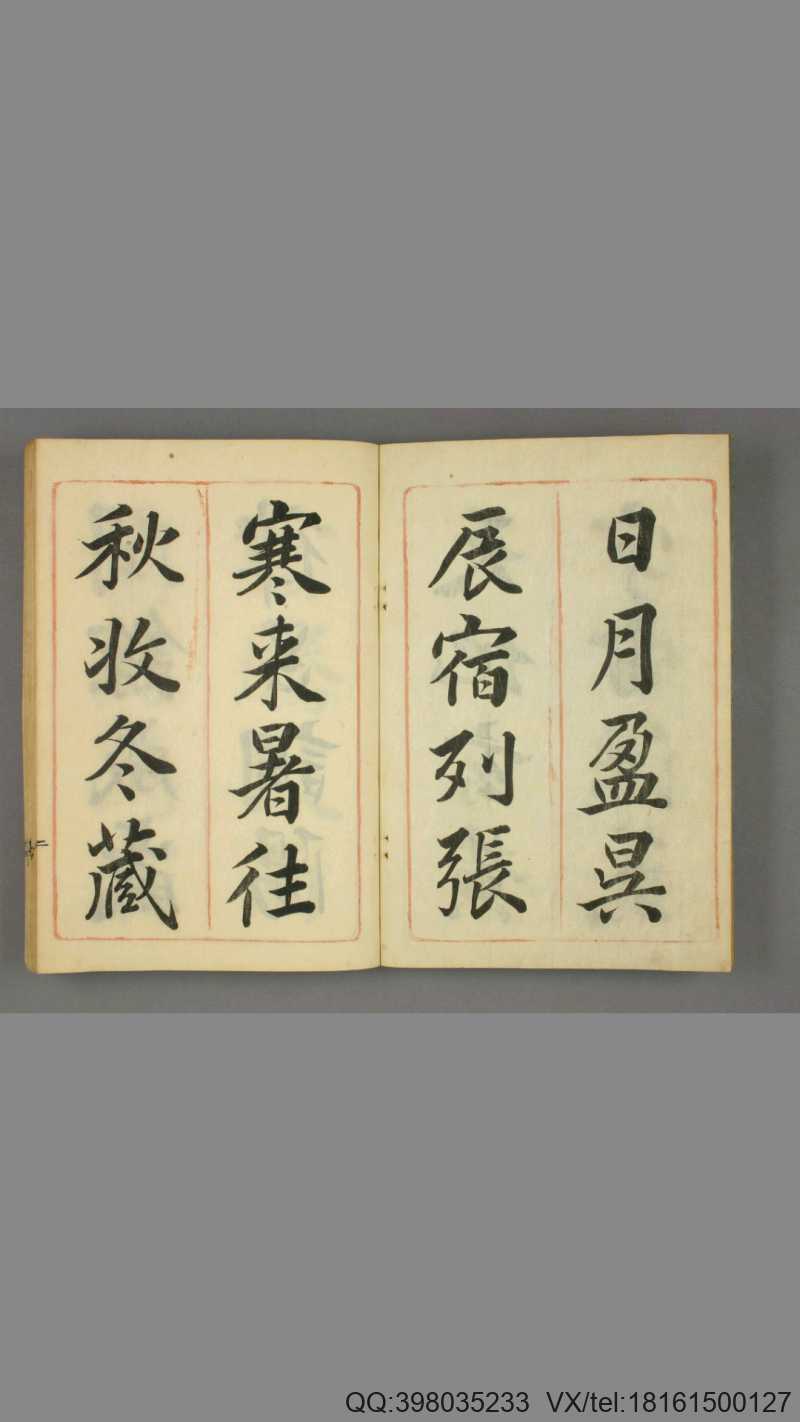 日月盈昃
辰宿列張
寒来暑往
秋收冬蔵
QQ:398035233 VX/tel:18161500127